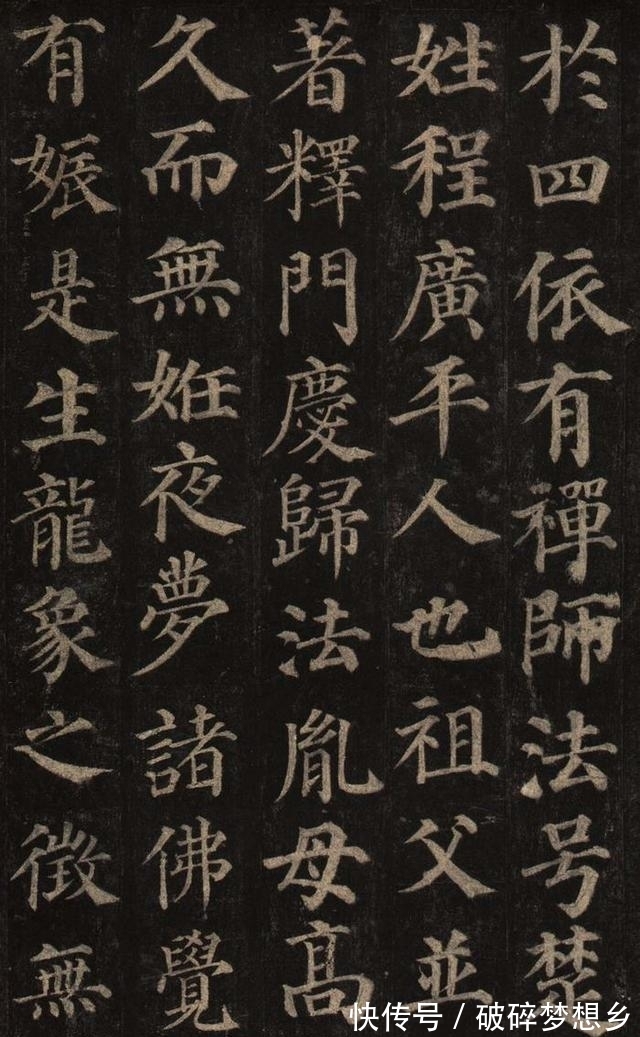 於四依有禪師法号楚
姓程廣平人也祖父並
著釋門慶歸法胤母高
久而無姙夜夢諸佛覺
有娠是生龍象之徵無
快传号 / 破碎梦想乡